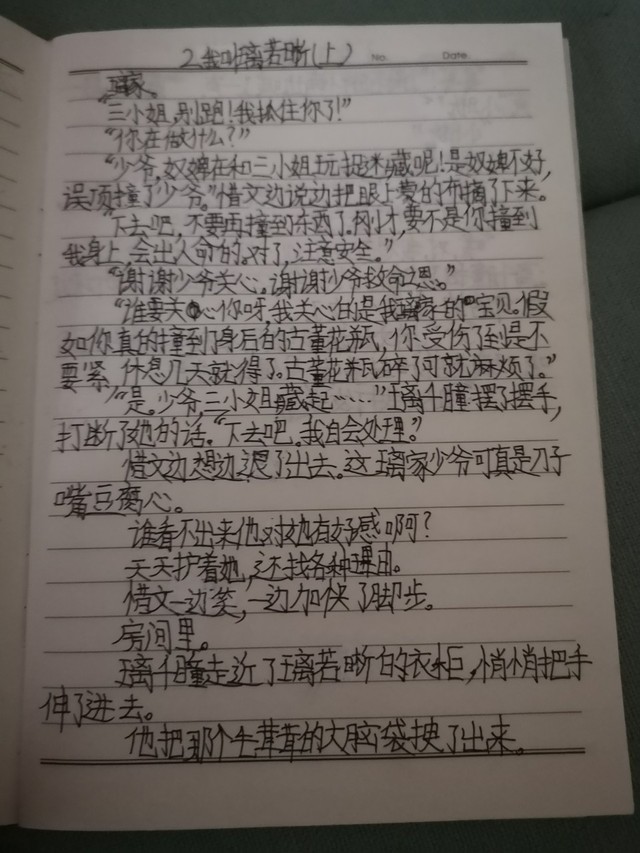 2.我叫璃若晰(上) No. Date.
璃家。
"三小姐,别跑!我抓住你了!"
"你在做什么?"
"少爷,奴婢在和三小姐玩捉迷藏呢!是奴婢不好,
误顶撞了少爷。"惜文边说边把眼上蒙的布摘了下来。
"下去吧,不要再撞到东西了。刚才,要不是你撞到
我身上,会出人命的。对了,注意安全。"
"谢谢少爷关心。谢谢少爷救命之恩。"
"谁要关心你呀,我关心的是我璃家的宝贝。假
如你真的撞到门身后的古董花瓶,你受伤了到是不
要紧,休息几天就得了。古董花瓶碎了可就麻烦了。"
"是。少爷,三小姐藏起……"璃千瞳摆了摆手,
打断了她的话。"下去吧,我自会处理。"
惜文边想边退了出去。这璃家少爷可真是刀子
嘴豆腐心。
谁看不出来他对她有好感啊?
天天护着她,还找各种理由。
惜文一边笑,一边加快了脚步。
房间里。
璃千瞳走近了璃若晰的衣柜,悄悄把手
伸了进去。
他把那个毛茸茸的大脑袋拽了出来。